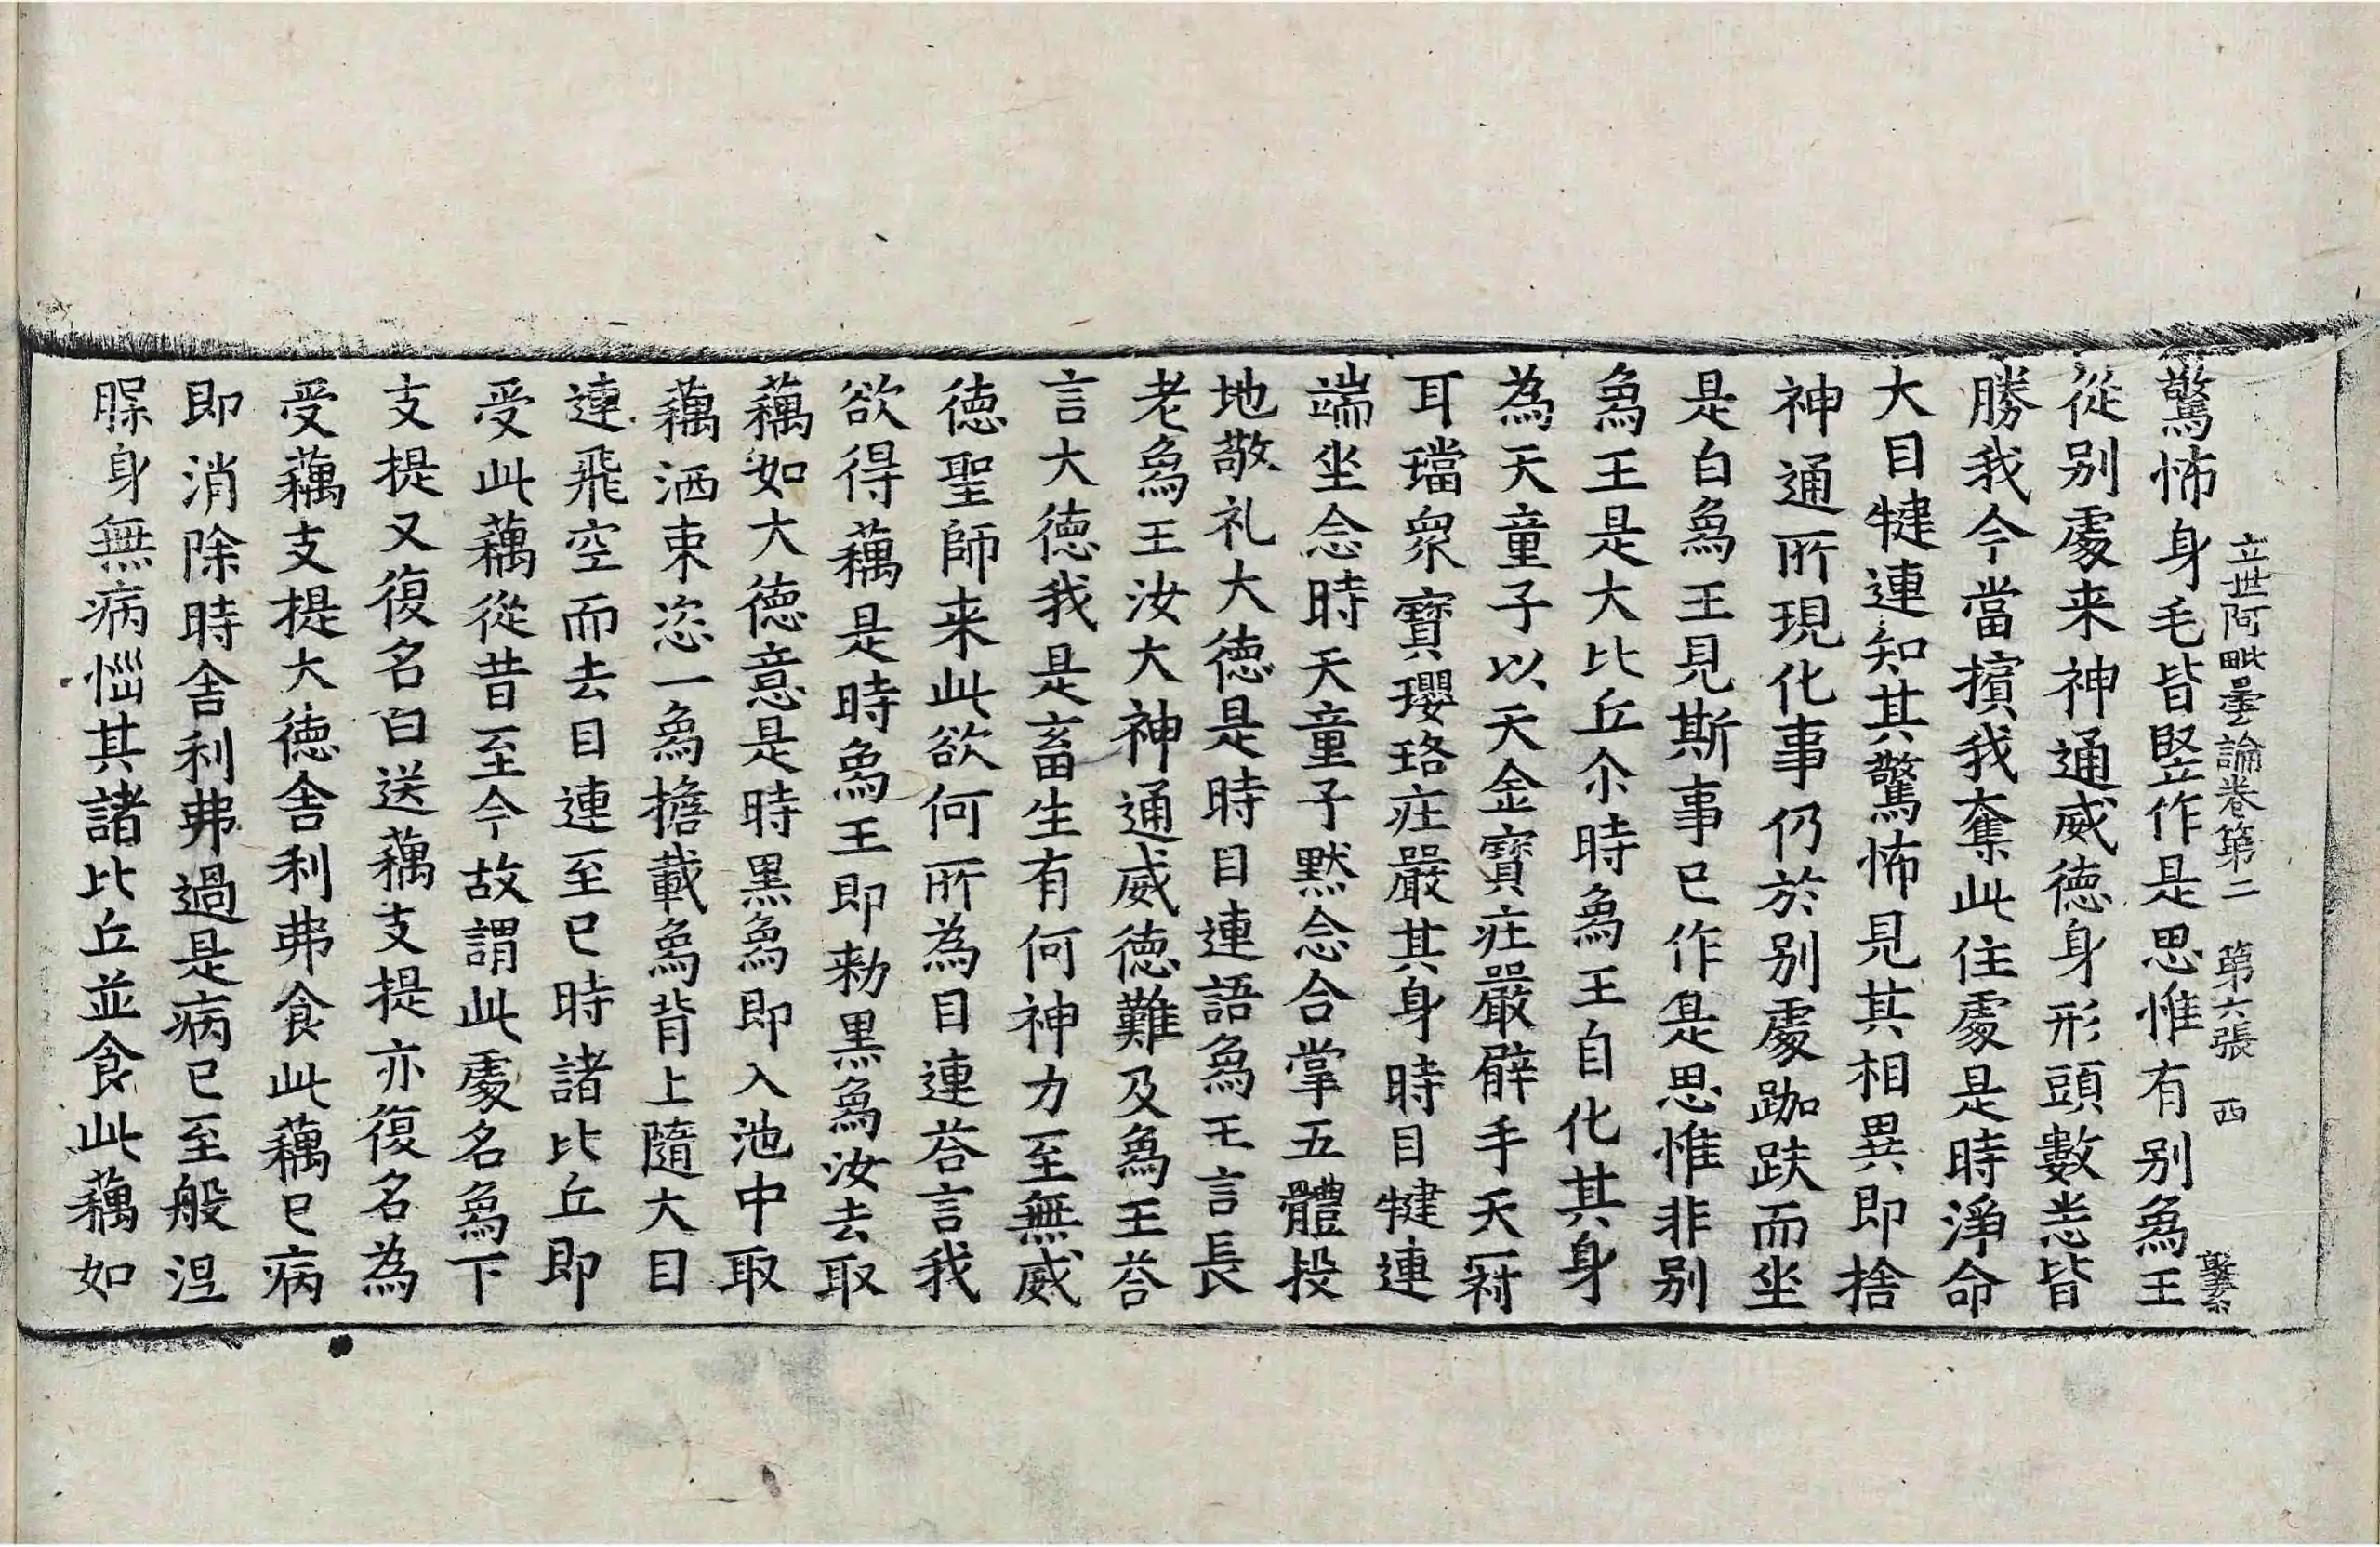 立世阿毗曇論卷第二　第六張　西
驚怖身毛皆竪作是思惟有别爲王
從别處来神通威德身形頭數恙皆
勝我今當擯我奪此住處是時淨命
大目犍連知其驚怖見其相異即捨
神通所現化事仍於别處跏趺而坐
是白爲王見斯事已作是思惟非别
爲王是大比丘尒時爲王自化其身
為天童子以天金寶莊嚴臂手天冠
耳璫衆寶瓔珞莊嚴其身時目犍連
端坐念時天童子默念合掌五體投
地敬礼大德是時目連語爲王言長
老爲王汝大神通威德難及爲王荅
言大德我是畜生有何神力至無威
德聖師来此欲何所為目連荅言我
欲得藕是時爲王即勑黑爲汝去取
藕如大德意是時黑爲即入池中取
藕洒束恣一爲擔載爲背上隨大目
連飛空而去目連至已時諸比丘即
受此藕從昔至今故謂此處名爲下
支提又復名曰送藕支提亦復名為
受藕支提大德舍利弗食此藕已病
即消除時舍利弗過是病已至般涅
脲身無病惱其諸比丘並食此藕如